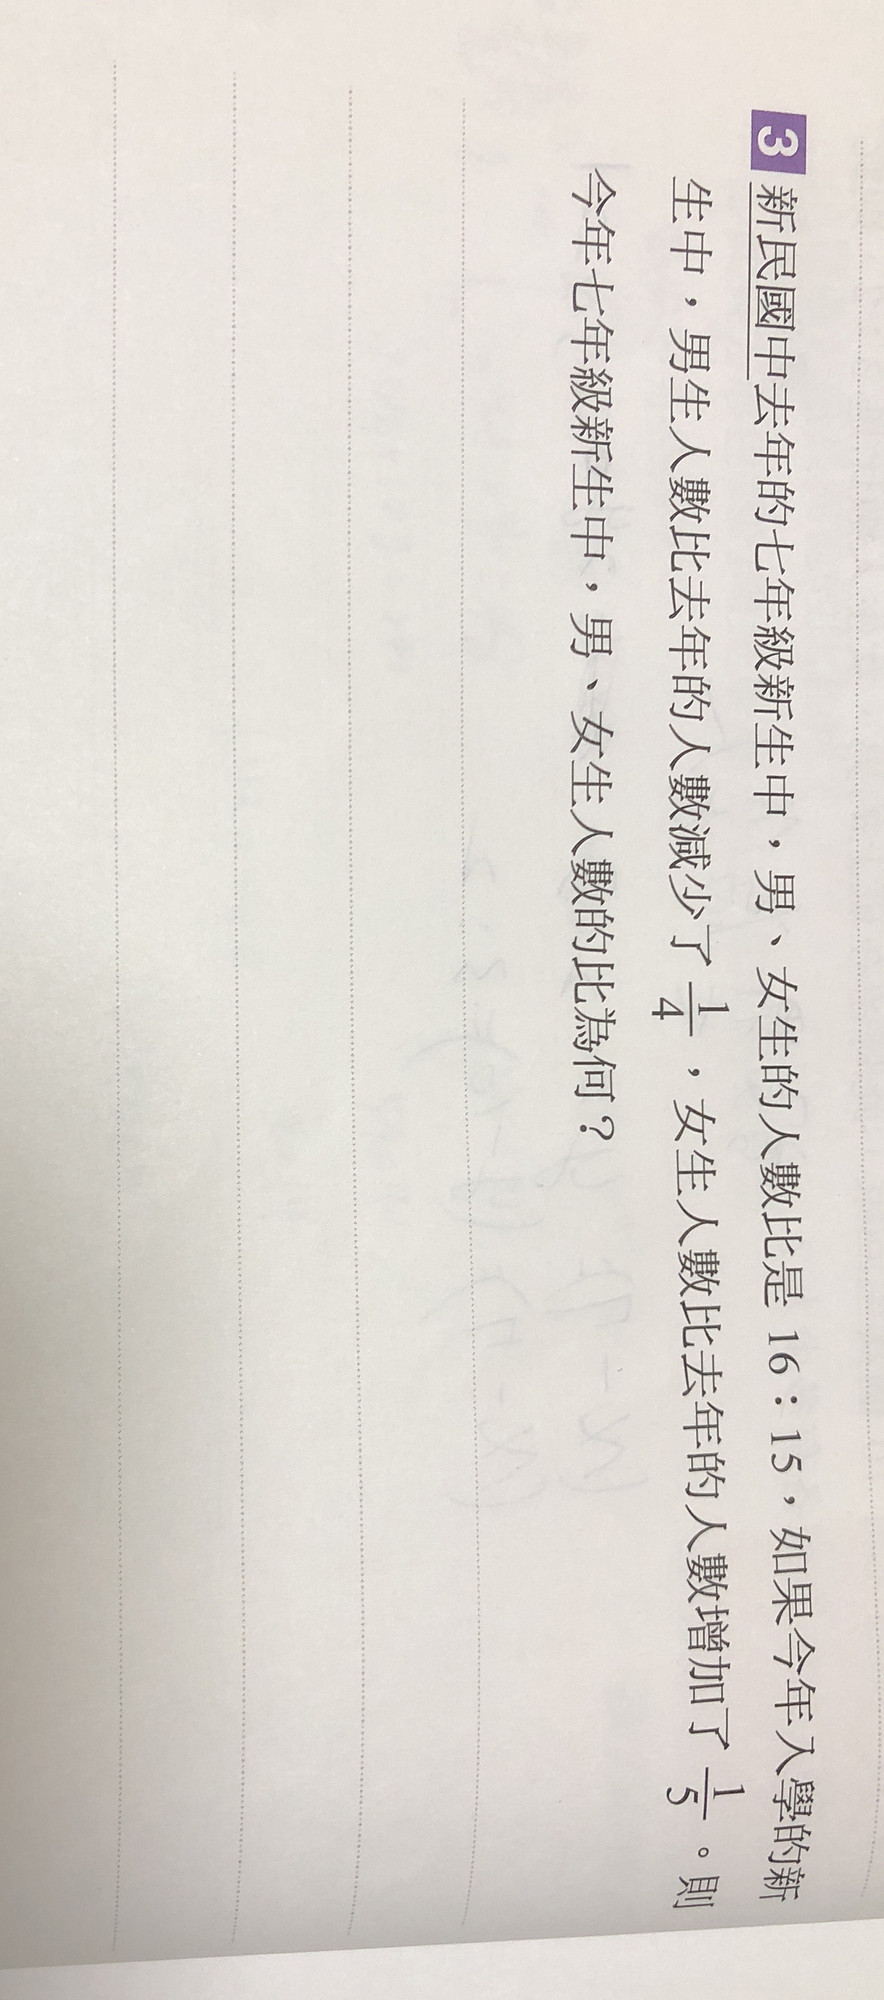 3 新民國中去年的七年級新生中，男、女生的人數比是 16：15，如果今年入學的新
生中，男生人數比去年的人數減少了 1/4，女生人數比去年的人數增加了 1/5。則
今年七年級新生中，男、女生人數的比為何？